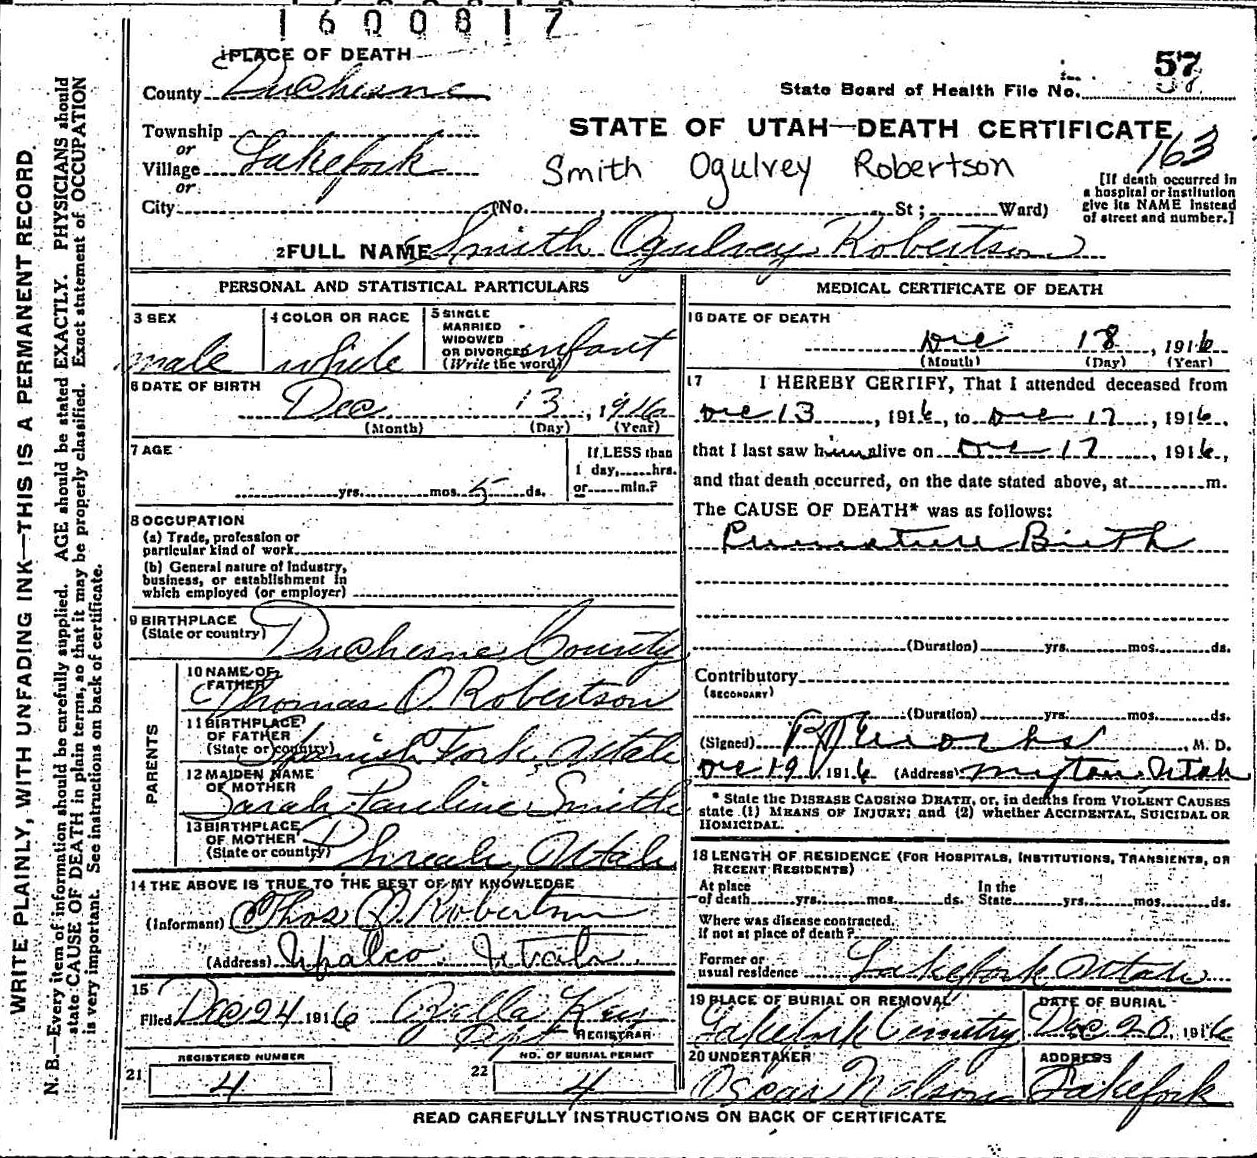 1600817
PLACE OF DEATH
57
County Duchesne
State Board of Health File No.
Township
or
STATE OF UTAH—DEATH CERTIFICATE
163
Village Lakefork
or
Smith Ogulvey Robertson
[If death occurred in
a hospital or institution
give its NAME instead
of street and number.]
City (No. St; Ward)
2 FULL NAME Smith Ogulvey Robertson
PERSONAL AND STATISTICAL PARTICULARS
3 SEX
male
4 COLOR OR RACE
white
5 SINGLE
MARRIED
WIDOWED
OR DIVORCED
(Write the word)
infant
6 DATE OF BIRTH
Dec 13, 1916
(Month) (Day) (Year)
7 AGE
yrs. mos. 5 ds.
If LESS than
1 day, hrs.
or min.?
8 OCCUPATION
(a) Trade, profession or
particular kind of work
(b) General nature of industry,
business, or establishment in
which employed (or employer)
9 BIRTHPLACE
(State or country)
Duchesne County
PARENTS
10 NAME OF
FATHER
Thomas O Robertson
11 BIRTHPLACE
OF FATHER
(State or country)
Spanish Fork, Utah
12 MAIDEN NAME
OF MOTHER
Sarah Pauline Smith
13 BIRTHPLACE
OF MOTHER
(State or country)
Utah
14 THE ABOVE IS TRUE TO THE BEST OF MY KNOWLEDGE
(Informant) Thos O. Robertson
(Address) Upalco Utah
15
Filed Dec 24 1916
REGISTRAR
REGISTERED NUMBER
21 4
NO. OF BURIAL PERMIT
22 4
MEDICAL CERTIFICATE OF DEATH
16 DATE OF DEATH
Dec 18, 1916
(Month) (Day) (Year)
17 I HEREBY CERTIFY, That I attended deceased from
Dec 13, 1916, to Dec 17, 1916,
that I last saw him alive on Dec 17, 1916,
and that death occurred, on the date stated above, at m.
The CAUSE OF DEATH* was as follows:
Premature Birth
(Duration) yrs. mos. ds.
Contributory
(SECONDARY)
(Duration) yrs. mos. ds.
(Signed) , M. D.
Dec 19, 1916 (Address) Myton, Utah
* State the DISEASE CAUSING DEATH, or, in deaths from VIOLENT CAUSES
state (1) MEANS OF INJURY; and (2) whether ACCIDENTAL, SUICIDAL OR
HOMICIDAL.
18 LENGTH OF RESIDENCE (FOR HOSPITALS, INSTITUTIONS, TRANSIENTS, OR
RECENT RESIDENTS)
At place
of death yrs. mos. ds.
In the
State yrs. mos. ds.
Where was disease contracted
if not at place of death?
Former or
usual residence Lakefork Utah
19 PLACE OF BURIAL OR REMOVAL
Lakefork Cemetry
DATE OF BURIAL
Dec 20, 1916
20 UNDERTAKER
Oscar Nelson
ADDRESS
Lakefork
READ CAREFULLY INSTRUCTIONS ON BACK OF CERTIFICATE
WRITE PLAINLY, WITH UNFADING INK—THIS IS A PERMANENT RECORD.
N. B.—Every item of information should be carefully supplied. AGE should be stated EXACTLY. PHYSICIANS should
state CAUSE OF DEATH in plain terms, so that it may be properly classified. Exact statement of OCCUPATION
is very important. See instructions on back of certificate.